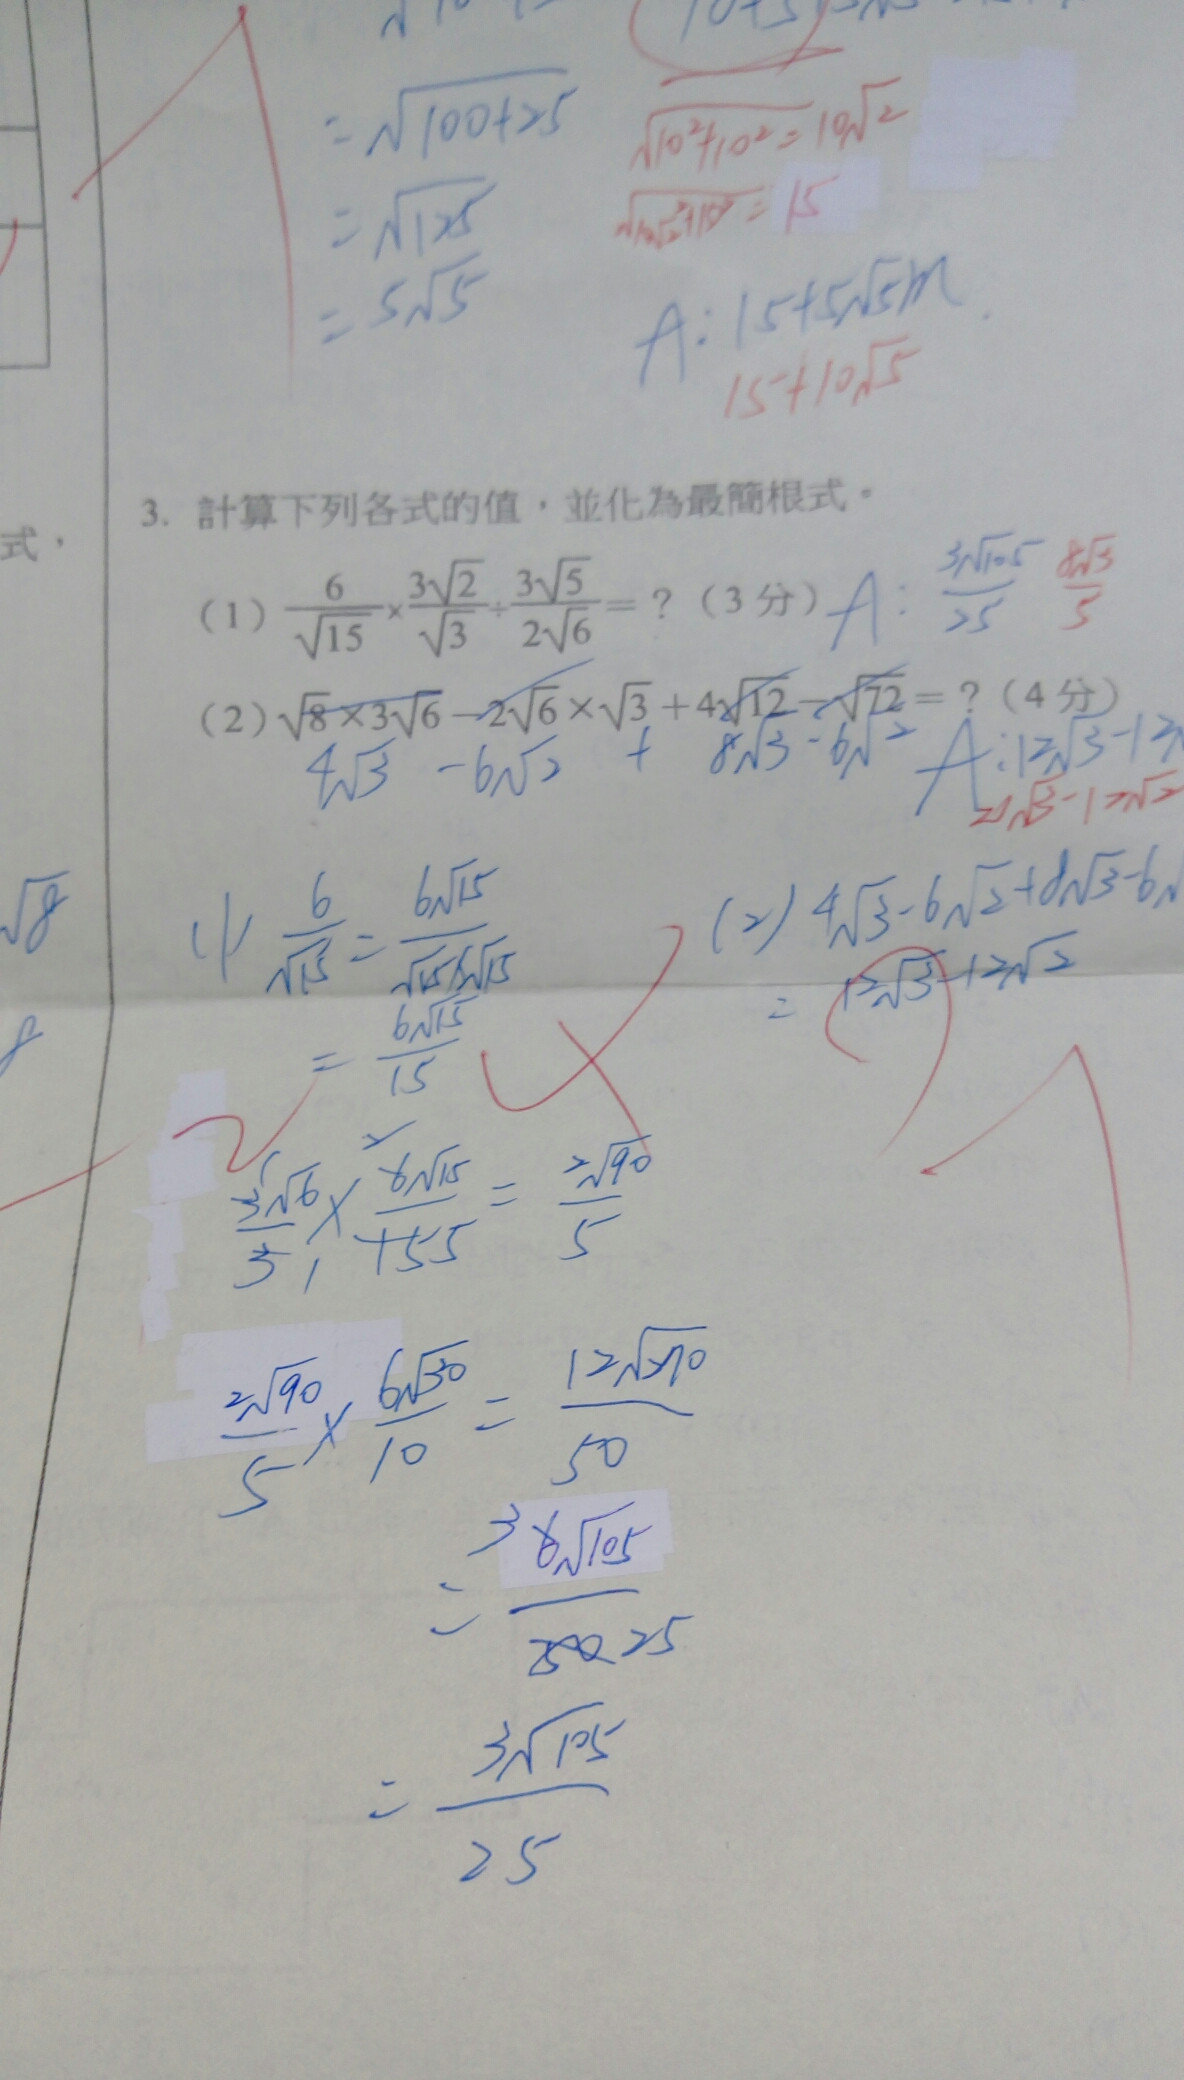 = √100+25
√10²+10² = 10√2
= √125
= 15
= 5√5
A: 15+5√5m.
15+10√5
式，
3. 計算下列各式的值，並化為最簡根式。
(1) 6/√15 × 3√2/√3 ÷ 3√5/2√6 = ？（3 分） A: 3√105/25 8√3/5
(2) √8 × 3√6 − 2√6 × √3 + 4√12 − √72 = ？（4 分）
4√3 - 6√2 + 8√3 - 6√2 A: 12√3-12
-12√2
√8
(1) 6/√15 = 6√15/√15×√15
= 6√15/15
(2) 4√3-6√2+8√3-6√
= 12√3-12√2
3√6/3 × 6√15/155 = 2√90/5
1 2
1
2√90/5 × 6√30/10 = 12√270/50
= 6√105/50 3 25
= 3√105/25